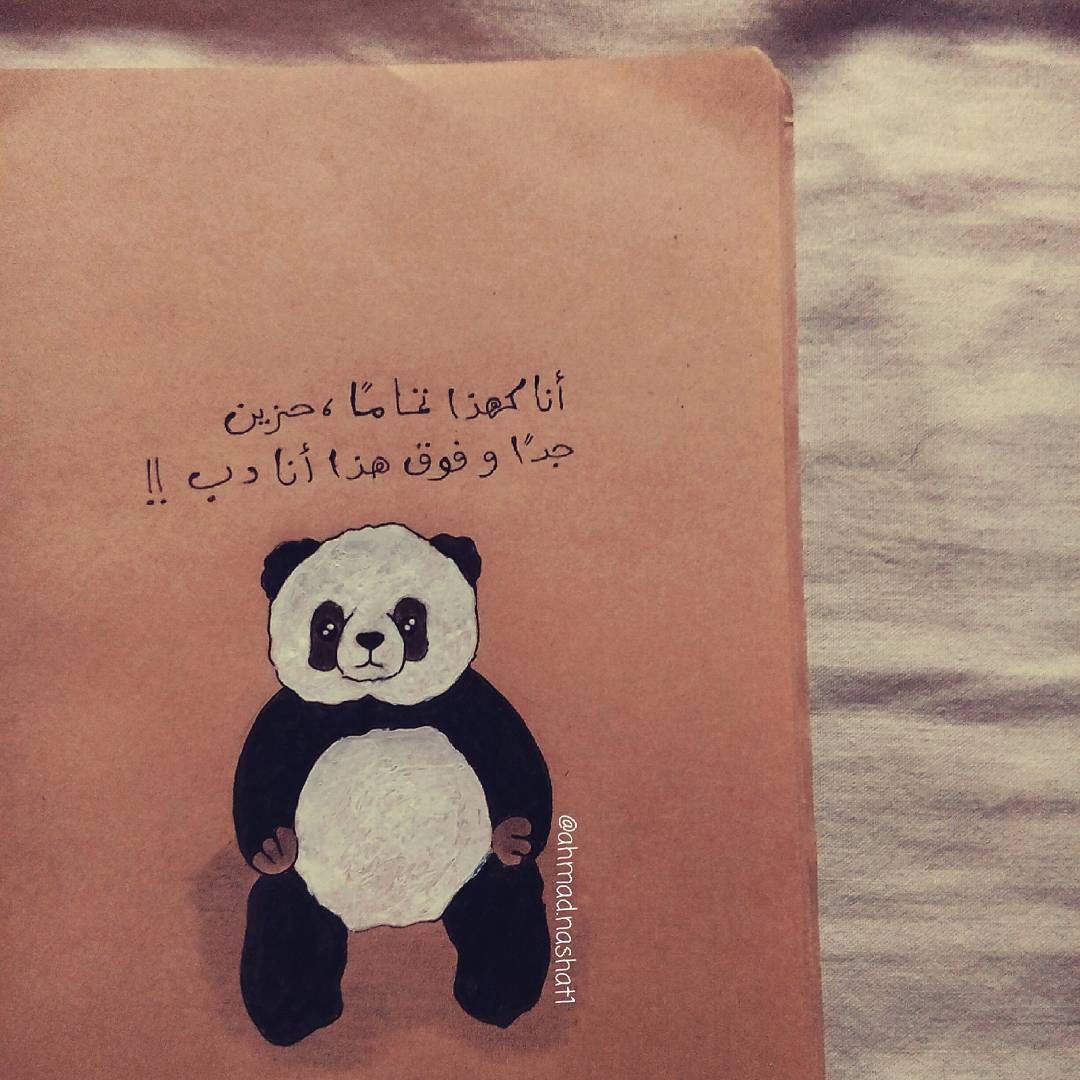 أنا كهذا تمامًا ، حزين
جدًا و فوق هذا أنا دب !!
@ahmad.nashat1